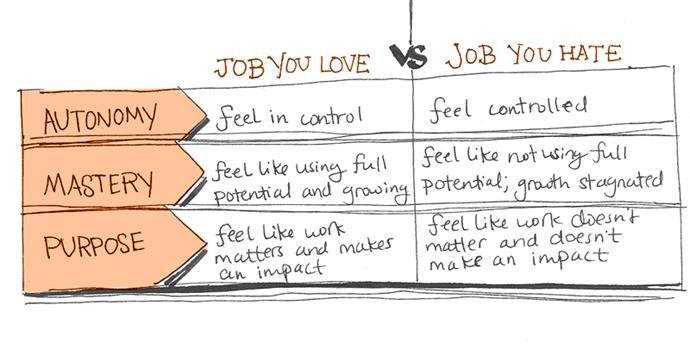 JOB YOU LOVE VS JOB YOU HATE
AUTONOMY
feel in control
feel controlled
MASTERY
feel like using full
potential and growing
feel like not using full
potential; growth stagnated
PURPOSE
feel like work
matters and makes
an impact
feel like work doesn't
matter and doesn't
make an impact